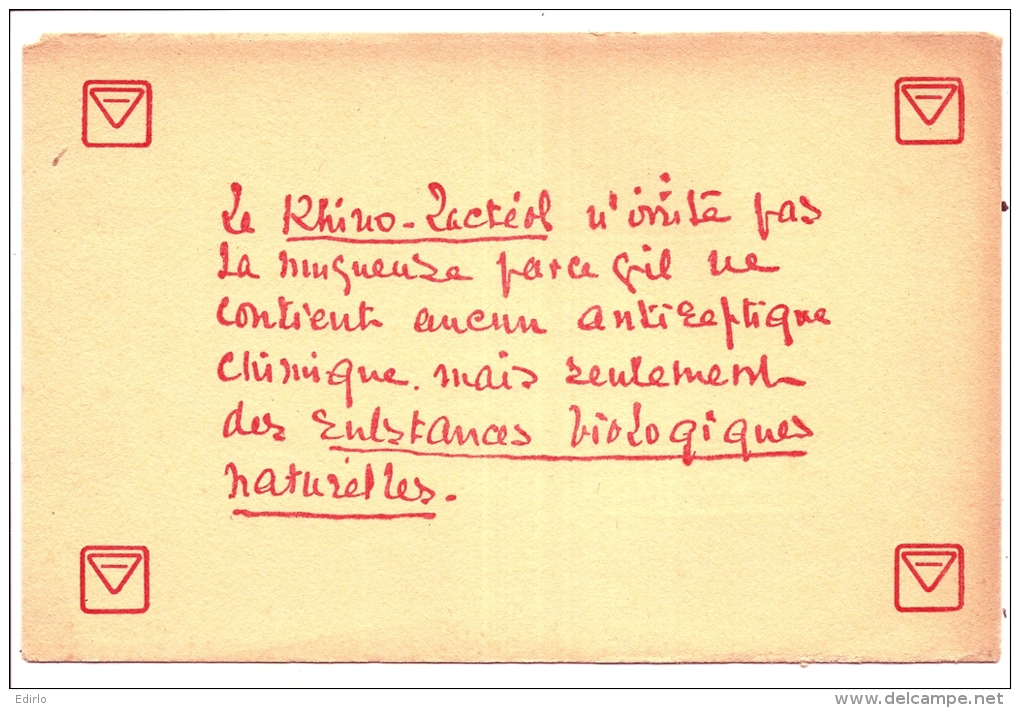 Le Rhino-Lactéol n'irrite pas
la muqueuse parce qu'il ne
contient aucun antiseptique
chimique. mais seulement
des substances biologiques
naturelles.
Edirlo
www.delcampe.net